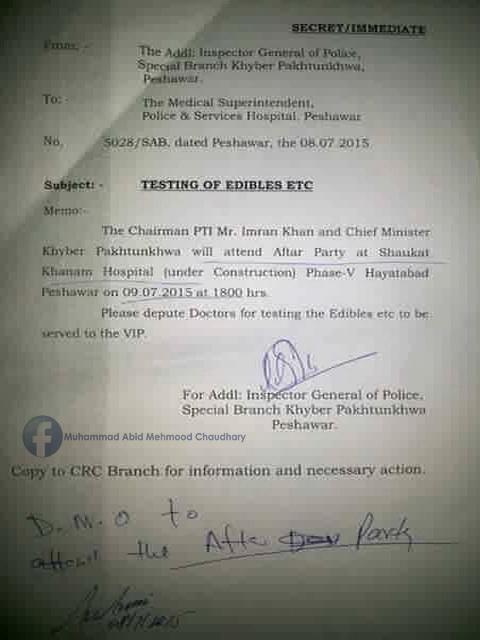 SECRET/IMMEDIATE
From, -
The Addl: Inspector General of Police,
Special Branch Khyber Pakhtunkhwa,
Peshawar.
To: -
The Medical Superintendent,
Police & Services Hospital, Peshawar
No. 5028/SAB, dated Peshawar, the 08.07.2015
Subject: - TESTING OF EDIBLES ETC
Memo:-
The Chairman PTI Mr. Imran Khan and Chief Minister
Khyber Pakhtunkhwa will attend Aftar Party at Shaukat
Khanam Hospital (under Construction) Phase-V Hayatabad
Peshawar on 09.07.2015 at 1800 hrs.
Please depute Doctors for testing the Edibles etc to be
served to the VIP.
For Addl: Inspector General of Police,
Special Branch Khyber Pakhtunkhwa
Peshawar.
Muhammad Abid Mehmood Chaudhary
Copy to CRC Branch for information and necessary action.
D.M.O to
attend the Party